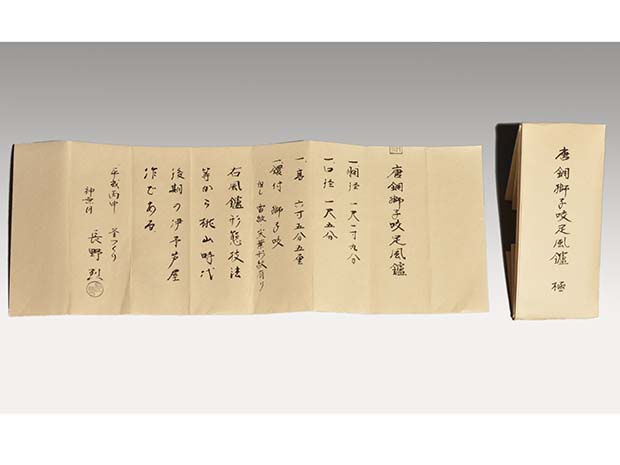 唐銅獅子咬足風鑪 極
唐銅獅子咬足風鑪
一胴径 一尺一寸九分
一口径 一尺五分
一高 六寸五分五厘
一鐶付 獅子咬
但し 雷紋 尖葉形紋有り
右風鑪形態技法
等から桃山時代
後期の伊予芦屋
作である
平成丙申 釜つくり
神無月 長野烈